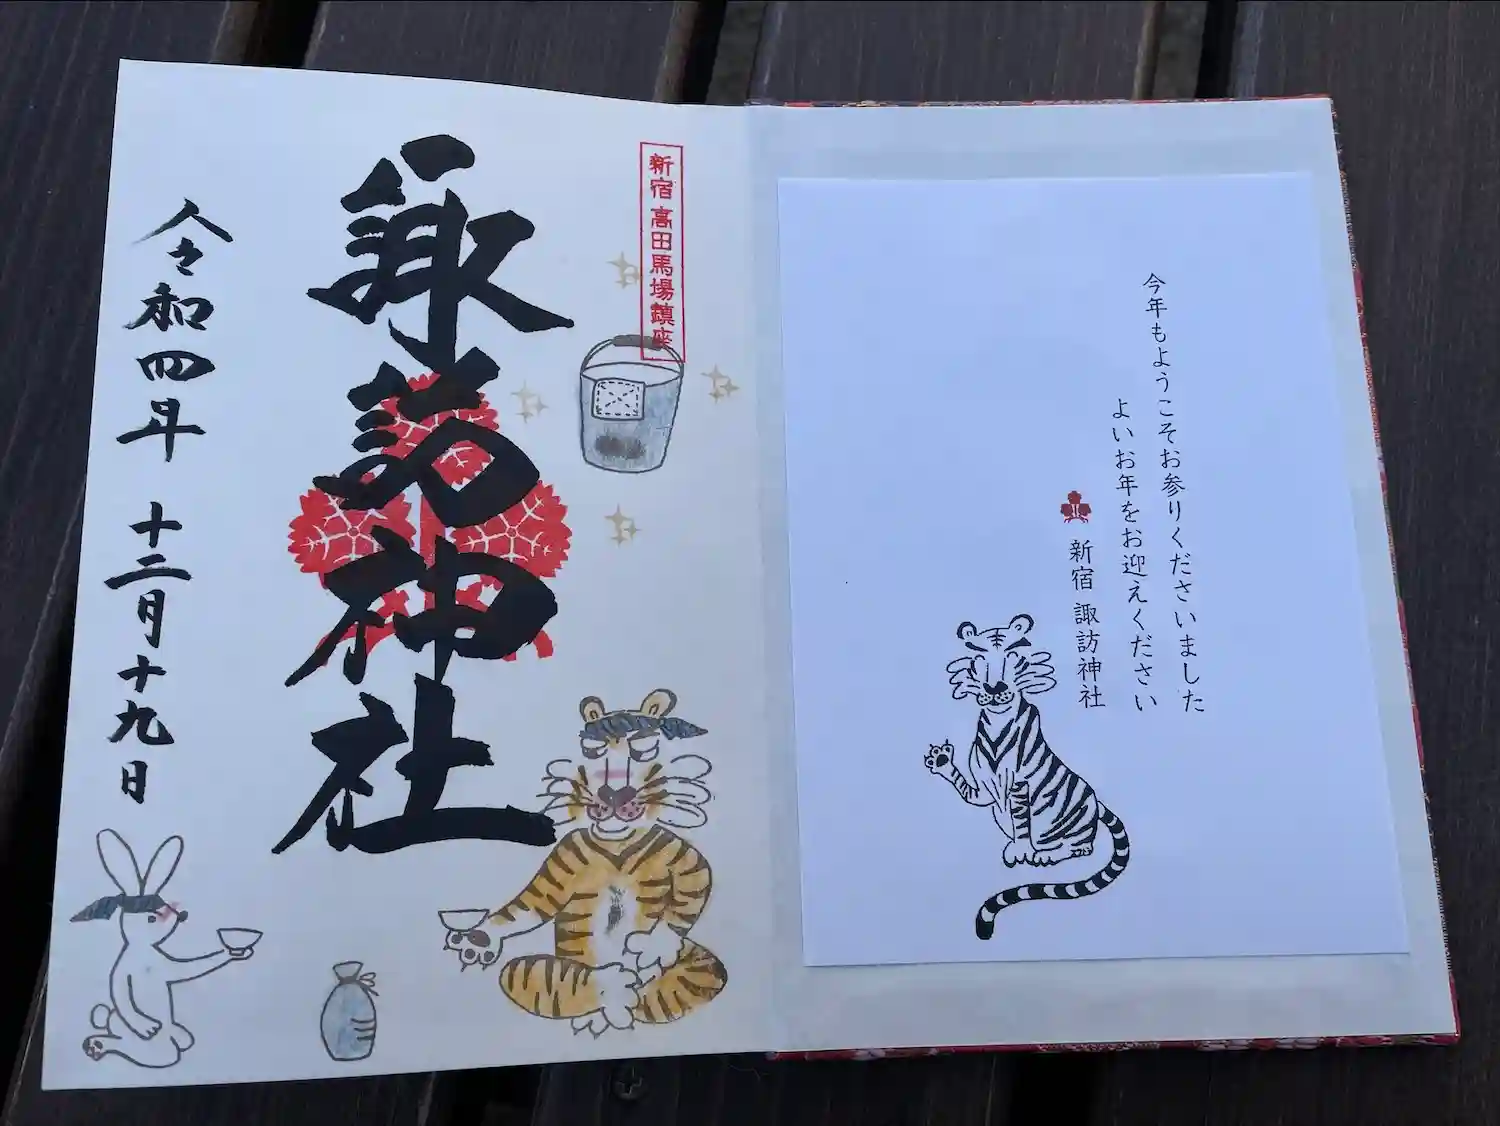 今年もようこそお参りくださいました
よいお年をお迎えください
新宿 諏訪神社
新宿高田馬場鎮座
諏訪神社
令和四年 十二月十九日